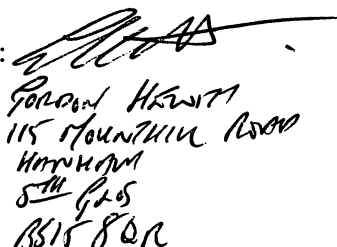 :
GORDON HEWITT
115 MOUNTHILL ROAD
HANHAM
STH GLOS
BS15 8QR